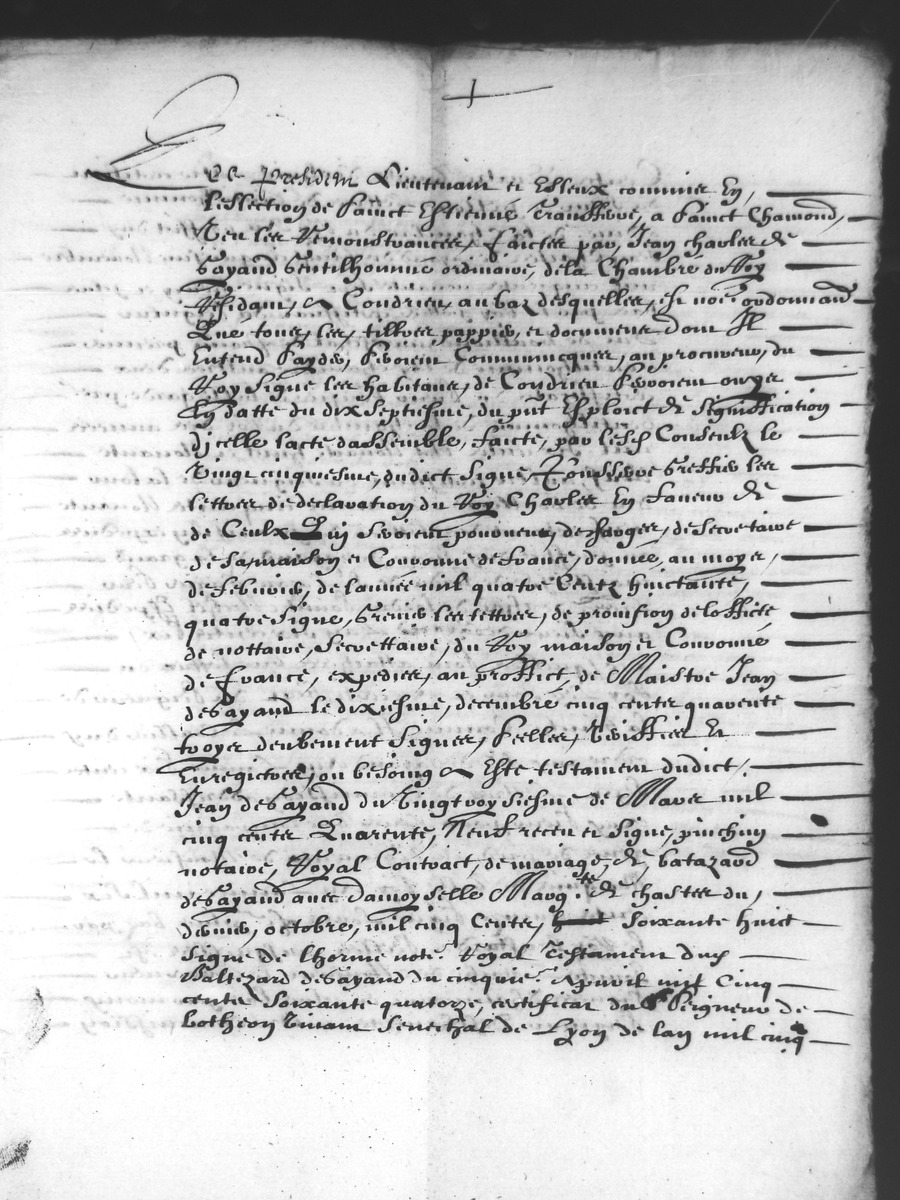 Les President Lieutenant et Esleux commine En
leslection de Sainct Estienne Transferee, a Sainct Chamond,
Veu les Remonstrances, faictes par, Jean charles de
Gayand Gentilhomme ordinaire, de la Chambre du Roy
Residant, a Condrieu, au bas desquelles, est noe. ordonnance
Que tous, les, tiltres pappiers, et documens dont Il
Entend sayder, seroient Communicques, au procureur, du
Roy signe les habitans, de Condrieu seroient ouyes
En datte du dix septiesme, du pnt Exploict de signiffication
dicelle lacte dassemblee, faicte, par lesd Consulz le
Vingt cinquiesme, dudict signe, greffier les
lettres de declaration du Roy Charles En faveur de
de Ceulx Qui seroient pourveus, de charges, de secretaire
de Sa maison et Couronne de France, donnee, au moys,
de febvrier, de lannee mil quatre Centz huictante,
quatre signe, les lettres, de provision de loffice
de nottaire, secrettaire, du Roy maison et Couronne
de france, expediees, au proffict, de Maistre Jean
de Gayand le dixiesme, decembre cinq centz quarente
troys deubement signees, seelles, veriffiees Et
Enregistrees, ou besoing a Este testament dudict,
Jean de Gayand du vingt troysiesme de Mars mil
cinq centz Quarente, Neuf receu et signe, pinchin
notaire, Royal Contract, de mariage, de, batazard
de Gayand avec damoyselle Marg.te de chastes du,
dernier, octobre, mil cinq Centz, soixante huict
signe de lhorme note. Royal Testament dud
Baltezard de Gayand du cinquie. Apvril mil Cinq
centz soixante quatorze, certificat du Seigneur de
botheon vivant senechal de Lyon de lan mil cinq